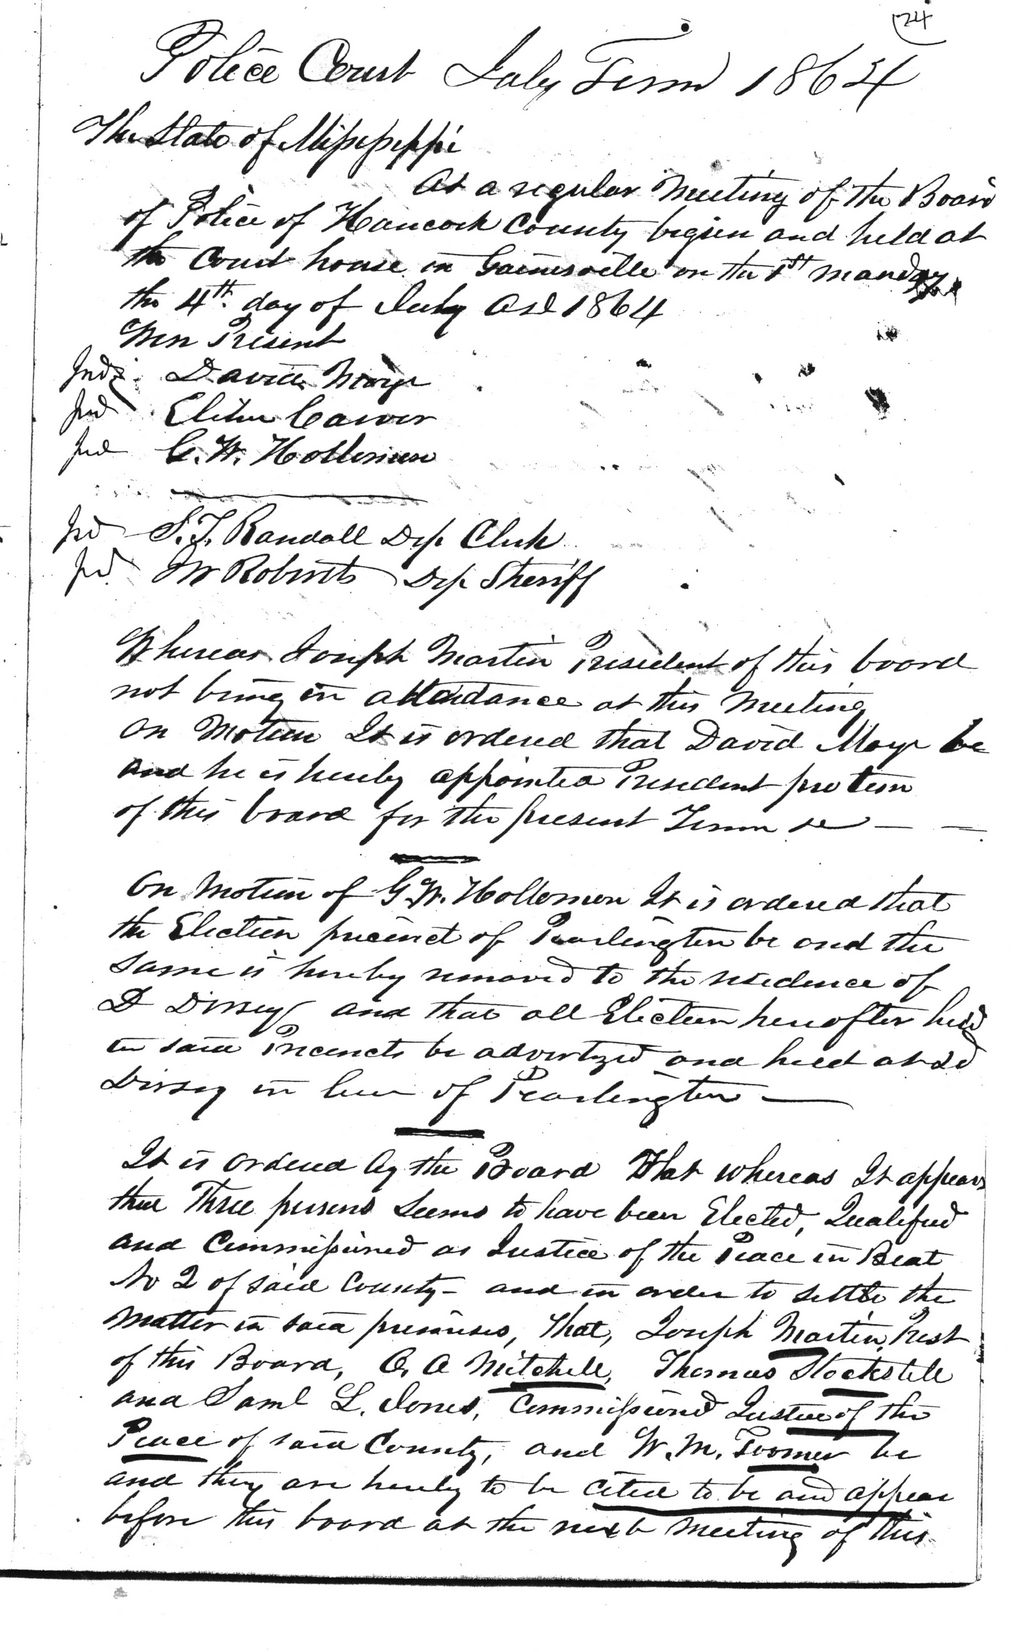 24
Police Court July Term 1864
The State of Mississippi
At a regular Meeting of the Board
of Police of Hancock County begun and held at
the Court house in Gainesville on the 1st Monday
the 4th day of July AD 1864
Men Present
David Moye
Elihu Carver
G. W. Holleman
S. J. Randall Dep Clerk
JW Roberts Dep Sheriff
Whereas Joseph Martin President of this board
not being in attendance at this Meeting
On Motion It is ordered that David Moye be
and he is hereby appointed President pro tem
of this board for the present Term
On Motion of G. W. Holleman It is ordered that
the Election precinct of Pearlington be and the
same is hereby removed to the residence of
D Dorsey and that all Election hereafter held
in said Precincts be advertized and held at sd
Dorsey in lieu of Pearlington
It is ordered by the Board That whereas It appears
that Three persons seems to have been Elected, Qualified
and Commissioned as Justice of the Peace in Beat
No 2 of said County - and in order to settle the
Matter in said premises, That, Joseph Martin, Prest
of this Board, A Mitchell, Thomas Stockstill
and Saml L. Jones, Commissioned Justice of the
Peace of said County, and W. M. Toomer be
and they are hereby to be cited to be and appear
before this board at the next Meeting of this